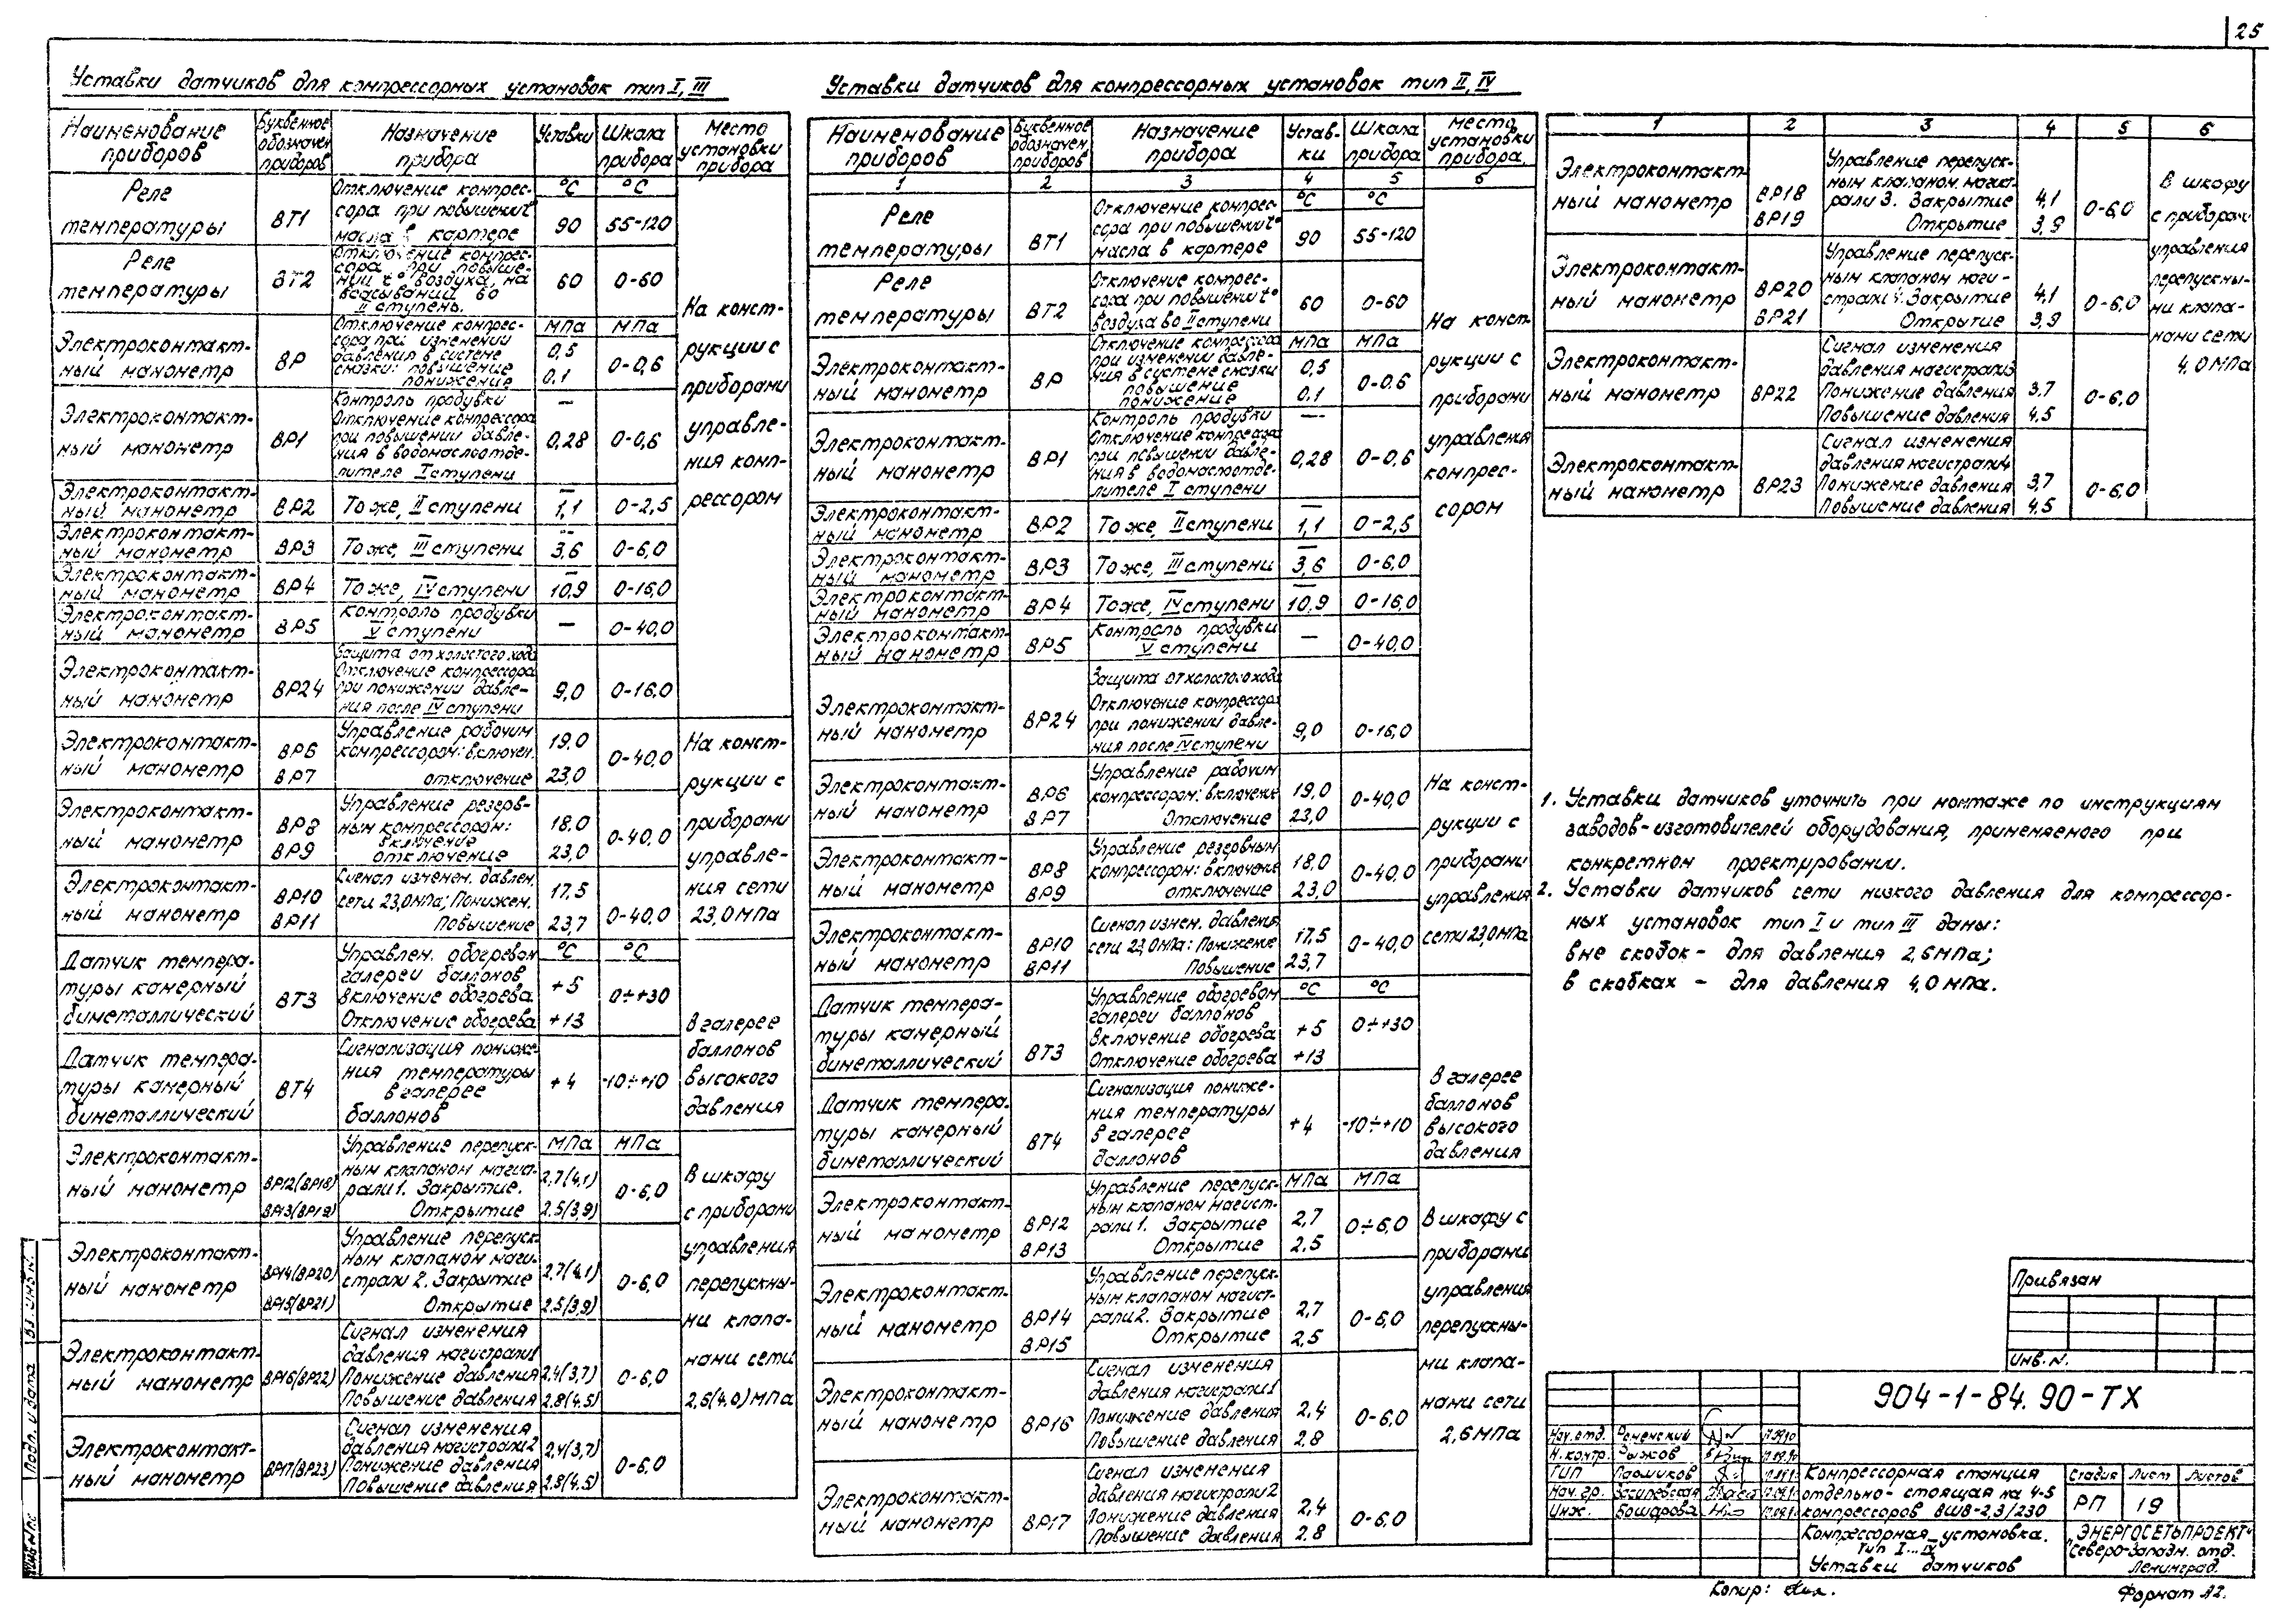 25
Уставки датчиков для компрессорных установок тип I, III
Наименование приборов | Буквенное обозначен. приборов | Назначение прибора | Уставки | Шкала прибора | Место установки прибора
Реле температуры | ВТ1 | Отключение компрессора при повышении t° масла в картере | °С 90 | °С 55-120 | На конструкции с приборами управления компрессором
Реле температуры | ВТ2 | Отключение компрессора при повышении t° воздуха, на всасывании во II ступень. | 60 | 0-60
Электроконтактный манометр | ВР | Отключение компрессора при изменении давления в системе смазки: повышение понижение | МПа 0,5 0,1 | МПа 0-0,6
Электроконтактный манометр | ВР1 | Контроль продувки Отключение компрессора при повышении давления в водомаслоотделителе I ступени | — 0,28 | 0-0,6
Электроконтактный манометр | ВР2 | То же, II ступени | — 1,1 | 0-2,5
Электроконтактный манометр | ВР3 | То же, III ступени | — 3,6 | 0-6,0
Электроконтактный манометр | ВР4 | То же, IV ступени | — 10,9 | 0-16,0
Электроконтактный манометр | ВР5 | Контроль продувки V ступени | — | 0-40,0
Электроконтактный манометр | ВР24 | Защита от холостого хода Отключение компрессора при понижении давления после IV ступени | 9,0 | 0-16,0
Электроконтактный манометр | ВР6 ВР7 | Управление рабочим компрессором: включен. отключение | 19,0 23,0 | 0-40,0 | На конструкции с приборами управления сети 23,0 МПа
Электроконтактный манометр | ВР8 ВР9 | Управление резервным компрессором: включение отключение | 18,0 23,0 | 0-40,0
Электроконтактный манометр | ВР10 ВР11 | Сигнал изменен. давлен. сети 23,0 МПа; Понижен. Повышение | 17,5 23,7 | 0-40,0
Датчик температуры камерный биметаллический | ВТ3 | Управлен. обогревом галереи баллонов Включение обогрева Отключение обогрева | °С +5 +13 | °С 0÷+30 | В галерее баллонов высокого давления
Датчик температуры камерный биметаллический | ВТ4 | Сигнализация понижения температуры в галерее баллонов | +4 | -10÷+10
Электроконтактный манометр | ВР12(ВР18) ВР13(ВР19) | Управление перепускным клапаном магистрали 1. Закрытие. Открытие | МПа 2,7(4,1) 2,5(3,9) | МПа 0-6,0 | В шкафу с приборами управления перепускными клапанами сети 2,6(4,0) МПа
Электроконтактный манометр | ВР14(ВР20) ВР15(ВР21) | Управление перепускным клапаном магистрали 2. Закрытие Открытие | 2,7(4,1) 2,5(3,9) | 0-6,0
Электроконтактный манометр | ВР16(ВР22) | Сигнал изменения давления магистрали 1 Понижение давления Повышение давления | 2,4(3,7) 2,8(4,5) | 0-6,0
Электроконтактный манометр | ВР17(ВР23) | Сигнал изменения давления магистрали 2 Понижение давления Повышение давления | 2,4(3,7) 2,8(4,5) | 0-6,0
Уставки датчиков для компрессорных установок тип II, IV
Наименование приборов | Буквенное обозначен. приборов | Назначение прибора | Уставки | Шкала прибора | Место установки прибора.
1 | 2 | 3 | 4 | 5 | 6
Реле температуры | ВТ1 | Отключение компрессора при повышении t° масла в картере | °С 90 | °С 55-120 | На конструкции с приборами управления компрессором
Реле температуры | ВТ2 | Отключение компрессора при повышении t° воздуха во II ступени | 60 | 0-60
Электроконтактный манометр | ВР | Отключение компрессора при изменении давления в системе смазки повышение понижение | МПа 0,5 0,1 | МПа 0-0,6
Электроконтактный манометр | ВР1 | Контроль продувки Отключение компрессора при повышении давления в водомаслоотделителе I ступени | — 0,28 | 0-0,6
Электроконтактный манометр | ВР2 | То же, II ступени | — 1,1 | 0-2,5
Электроконтактный манометр | ВР3 | То же, III ступени | — 3,6 | 0-6,0
Электроконтактный манометр | ВР4 | То же, IV ступени | — 10,9 | 0-16,0
Электроконтактный манометр | ВР5 | Контроль продувки V ступени | — | 0-40,0
Электроконтактный манометр | ВР24 | Защита от холостого хода Отключение компрессора при понижении давления после IV ступени | 9,0 | 0-16,0
Электроконтактный манометр | ВР6 ВР7 | Управление рабочим компрессором: включение Отключение | 19,0 23,0 | 0-40,0 | На конструкции с приборами управления сети 23,0 МПа
Электроконтактный манометр | ВР8 ВР9 | Управление резервным компрессором: включение отключение | 18,0 23,0 | 0-40,0
Электроконтактный манометр | ВР10 ВР11 | Сигнал измен. давления сети 23,0 МПа: Понижение Повышение | 17,5 23,7 | 0-40,0
Датчик температуры камерный биметаллический | ВТ3 | Управление обогревом галереи баллонов Включение обогрева Отключение обогрева | °С +5 +13 | °С 0÷+30 | В галерее баллонов высокого давления
Датчик температуры камерный биметаллический | ВТ4 | Сигнализация понижения температуры в галерее баллонов | +4 | -10÷+10
Электроконтактный манометр | ВР12 ВР13 | Управление перепускным клапаном магистрали 1. Закрытие Открытие | МПа 2,7 2,5 | МПа 0÷6,0 | В шкафу с приборами управления перепускными клапанами сети 2,6 МПа
Электроконтактный манометр | ВР14 ВР15 | Управление перепускным клапаном магистрали 2. Закрытие Открытие | 2,7 2,5 | 0-6,0
Электроконтактный манометр | ВР16 | Сигнал изменения давления магистрали 1 Понижение давления Повышение давления | 2,4 2,8 | 0-6,0
Электроконтактный манометр | ВР17 | Сигнал изменения давления магистрали 2 Понижение давления Повышение давления | 2,4 2,8 | 0-6,0
1 | 2 | 3 | 4 | 5 | 6
Электроконтактный манометр | ВР18 ВР19 | Управление перепускным клапаном магистрали 3. Закрытие Открытие | 4,1 3,9 | 0-6,0 | В шкафу с приборами управления перепускными клапанами сети 4,0 МПа
Электроконтактный манометр | ВР20 ВР21 | Управление перепускным клапаном магистрали 4. Закрытие Открытие | 4,1 3,9 | 0-6,0
Электроконтактный манометр | ВР22 | Сигнал изменения давления магистрали 3 Понижение давления Повышение давления | 3,7 4,5 | 0-6,0
Электроконтактный манометр | ВР23 | Сигнал изменения давления магистрали 4 Понижение давления Повышение давления | 3,7 4,5 | 0-6,0
1. Уставки датчиков уточнить при монтаже по инструкциям
заводов-изготовителей оборудования, применяемого при
конкретном проектировании.
2. Уставки датчиков сети низкого давления для компрессор-
ных установок тип I и тип III даны:
вне скобок - для давления 2,6 МПа;
в скобках - для давления 4,0 МПа.
Привязан
Инв. N.
904-1-84.90-ТХ
Нач. отд. Роменский
Н. контр. Рыжов
ГИП
Нач. гр.
Инж.
Компрессорная станция
отдельно-стоящая на 4-5
компрессоров ВШВ-2,3/230
Стадия | Лист | Листов
РП | 19
Компрессорная установка.
Тип I...IV
Уставки датчиков
"ЭНЕРГОСЕТЬПРОЕКТ"
Северо-Западн. отд.
Ленинград.
Копир:
Формат А2.
Подп. и дата